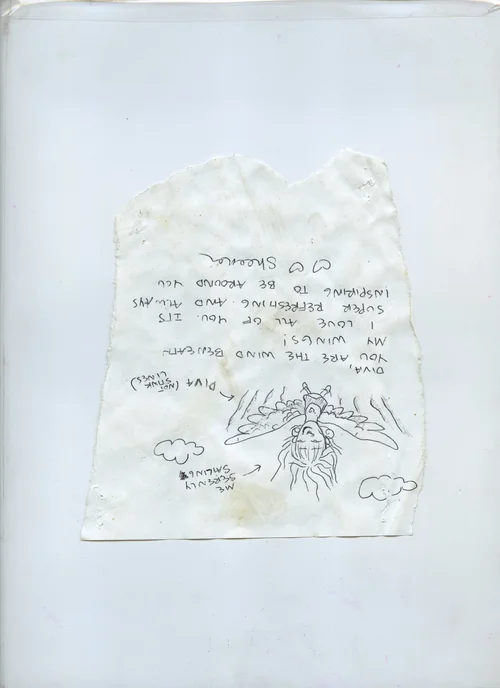 ME
SERENLY
SMILING
DIVA (NOT
STINK
LINES)
DIVA,
YOU ARE THE WIND BENEATH
MY WINGS!
I LOVE ALL OF YOU. ITS
SUPER REFRESHING AND ALWAYS
INSPIRING TO BE AROUND YOU
♡ ♡ Sheena